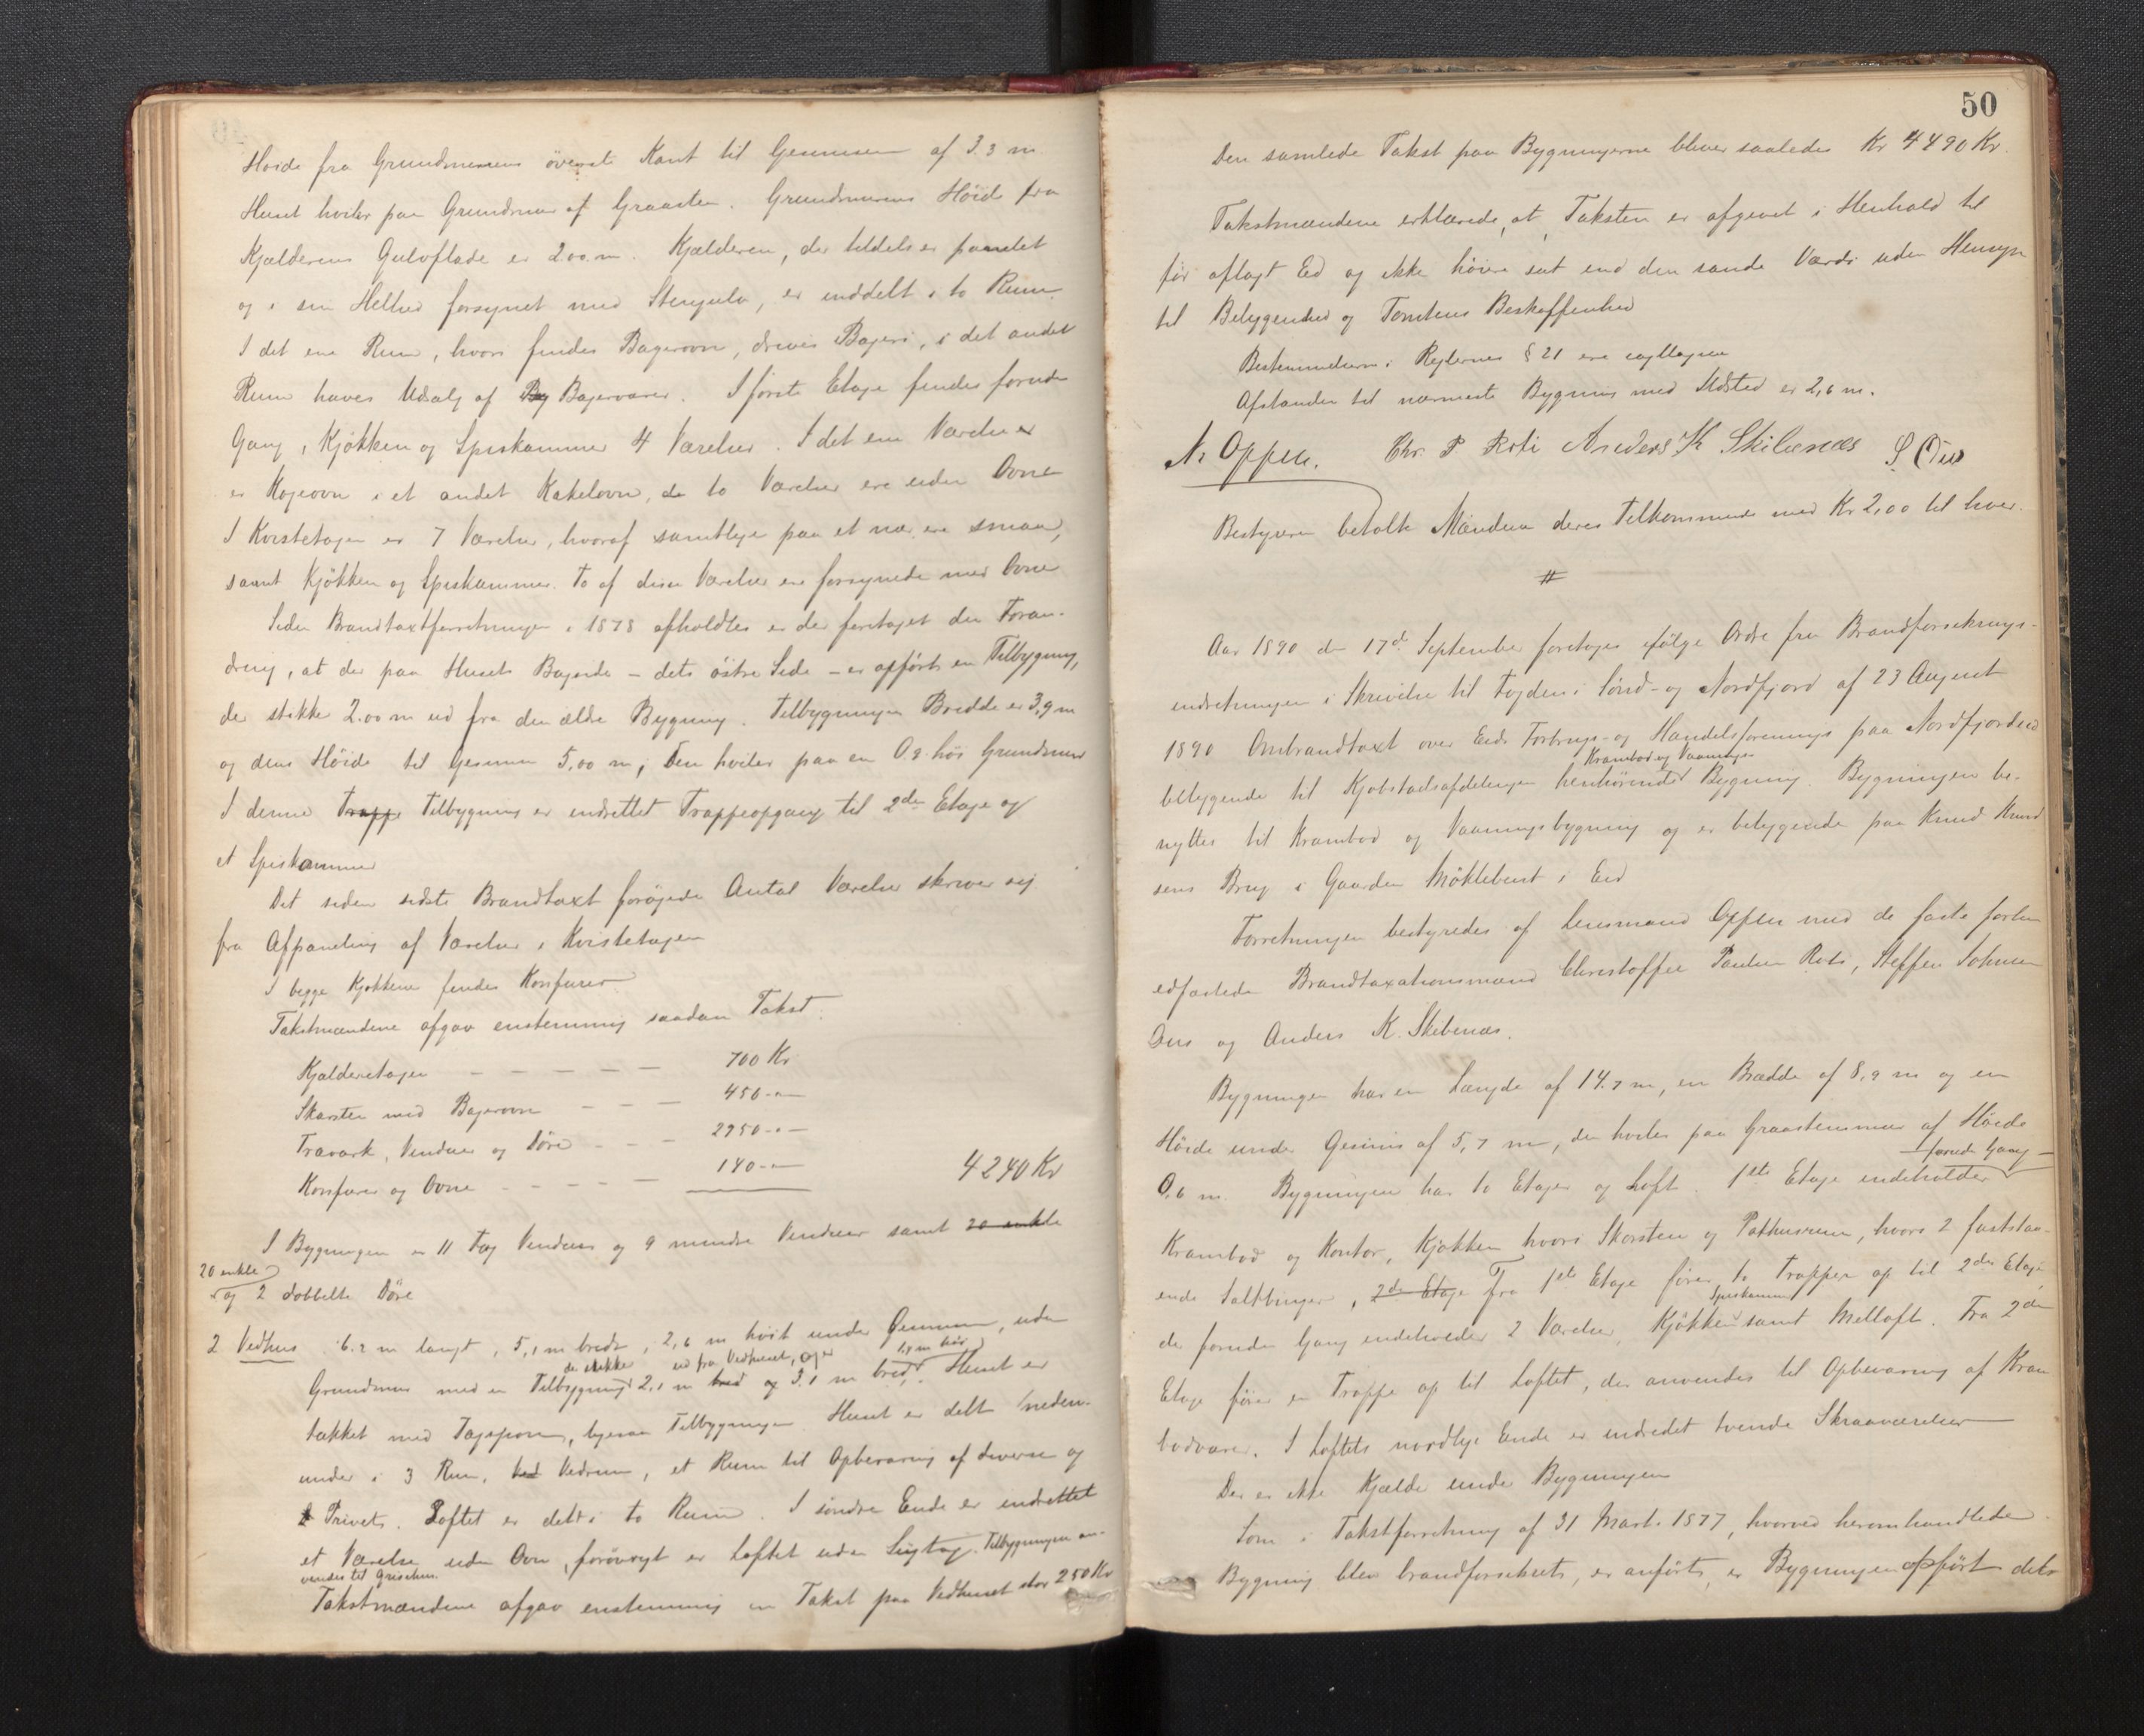 Høide fra Grundmurens øverste Kant til Gesimsen af 3.3 m
Huset hviler paa Grundmur af Graasten. Grundmurens Høide fra
Kjælderens Gulvflade er 2.00 m. Kjælderen, der tildels er panelet
og i sin Helhed forsynet med Stengulv, er inddelt i to Rum.
I det ene Rum, hvori findes Bagerovn, drives Bageri, i det andet
Rum haves Udsalg af Bagervarer. I første Etage findes foruden
Gang, Kjøkken og Spiskammer 4 Værelser. I det ene Værelse
er Kogeovn i et andet Kakelovn, de to Værelser ere uden Ovne
I Kvistetagen er 7 Værelser, hvoraf samtlige paa et nær ere smaa,
samt Kjøkken og Spiskammer. To af disse Værelser ere forsynede med Ovne
Siden Brandtaxtforretningen i 1878 afholdtes er der foretaget den Foran-
dring, at der paa Husets Bagside – dets østre Side – er opført en Tilbygning,
der stikker 2.00 m ud fra den ældre Bygning. Tilbygningens Bredde er 3,9 m
og dens Høide til Gesimsen 5,00 m, Den hviler paa en 0.9 høi Grundmur
I denne Trappe Tilbygning er indrettet Trappeopgang til 2den Etage og
et Spiskammer
Det siden sidste Brandtaxt forøgede Antal Værelser skriver sig
fra Afpaneling af Værelser i Kvistetagen
I begge Kjøkkener findes Komfurer
Takstmændene afgav enstemmig saadan Takst.
Kjælderetagen – – – – – 700 Kr
Skorsten med Bagerovn – – – 450 –"–
Træværk, Vinduer og Døre – – – 2950 –"–
Komfurer og Ovne – – – – 140 –"– 4240 Kr
I Bygningen er 11 Fag Vinduer og 9 mindre Vinduer samt 20 enkle
20 enkle
og 2 dobbelte Døre
2 Vedhus 6.2 m langt, 5,1 m bredt, 2,6 m høit under Gesimsen, uden
der stikker ud fra Vedhuset, og er 1,8 m høi
Grundmur med en Tilbygning 2,1 m bred og 3.1 m bred. Huset er
tækket med Tagspon, ligesaa Tilbygningen. Huset er delt neden-
under i 3 Rum, Vedrum, et Rum til Opbevaring af diverse og
Privet. Loftet er delt i to Rum. I søndre Ende er indrettet
et Værelse uden Ovn, forøvrigt er Loftet uden Tilbygningen an-
vendes til Grisehus.
Takstmændene afgav enstemmig en Takst paa Vedhuset stor 250 Kr
50
Den samlede Takst paa Bygningerne bliver saaledes Kr 4490 Kr.
Takstmændene erklærede, at Taksten er afgivet i Henhold til
før aflagt Ed og ikke høiere sat end den sande Værdi uden Hensyn
til Beliggenhed og Tomtens Beskaffenhed
Bestemmelserne i Reglernes § 21 ere iagttagne
Afstanden til nærmeste Bygning med Ildsted er 2,6 m.
N. Oppen. Chr. P Roti Anders K Skibenæs S Øus
Bestyreren betalte Mændene deres Tilkommende med Kr 2,00 til hver.
#
Aar 1890 den 17de September foretoges ifølge Ordre fra Brandforsikrings-
indretningen i Skrivelse til Fogden i Sønd- og Nordfjord af 23 August
1890 Ombrandtaxt over Eids Forbrugs- og Handelsforenings paa Nordfjordeid
Krambod og Vaanings-
beliggende til Kjøbstadsafdelingen henhørende Bygning. Bygningen be-
nyttes til Krambod og Vaaningsbygning og er beliggende paa Knud Knud
sens Brug i Gaarden MØklebust i Eid
Forretningen bestyredes af Lensmand Oppen med de faste forhen
edfæstede Brandtaxationsmænd Christoffer Paulsen Roti, Steffen Johnsen
Øus og Anders K. Skibenæs.
Bygningen har en Længde af 14.7 m, en Bredde af 8,9 m og en
Høide under Gesims af 5,7 m, den hviler paa Graastensmur af Høide
foruden Gang
0,6 m. Bygningen har to Etager og Loft. 1ste Etage indeholder
Krambod og Kontor, Kjøkken hvori Skorsten og Pakhusrum, hvori 2 faststaa-
ende Saltbinger, 2den Etage Fra 1ste Etage fører to Trapper op til 2den Etage,
Spiskammer
der foruden Gang indeholder 2 Værelser, Kjøkken samt Melloft. Fra 2den
Etage fører en Trappe op til Loftet, der anvendes til Opbevaring af Kram
bodvarer. I Loftets nordlige Ende er indredet tvende Skraaværelser
Der er ikke Kjælder under Bygningen
Som i Takstforretning af 31 Mart. 1877, hvorved heromhandlede
Bygning blev brandforsikret, er anført, er Bygningen opført dels